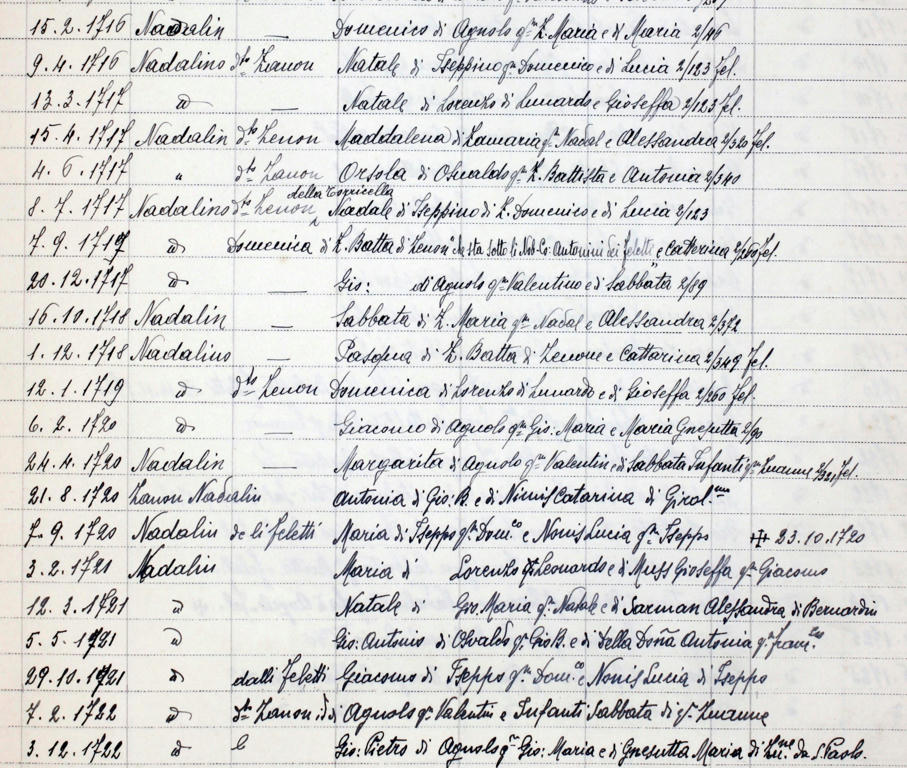 15.2.1716 Nadalin — Domenico di Agnolo qm Z. Maria e di Maria 2/46
9.4.1716 Nadalino dto Zanon Natale di Iseppino qm Domenico e di Lucia 2/123 fel.
13.3.1717 " — Natale di Lorenzo di Lunardo e Gioseffa 2/123 fel.
15.4.1717 Nadalin dto Zenon Maddalena di Zamaria qm Nadal e Alessandra 2/320 fel.
4.6.1717 " dto Zanon Orsola di Osvaldo qm Z. Battista e Antonia 2/340
8.7.1717 Nadalino dto Zenon della Torricella Nadale di Iseppino di Z. Domenico e di Lucia 2/123
7.9.1717 " Domenica di Z. Batta di Zenon sta sotto li Nob. Co. Antonini dei Feletti e Catterina 2/260 fel.
20.12.1717 " — Gio: di Agnolo qm Valentino e di Sabbata 2/89
16.10.1718 Nadalin — Sabbata di Z. Maria qm Nadal e Alessandra 2/372
1.12.1718 Nadalino — Pasqua di Z. Batta di Zenone e Cattarina 2/349 fel.
12.1.1719 " dto Zenon Domenica di Lorenzo di Lunardo e di Gioseffa 2/260 fel.
6.2.1720 " — Giacomo di Agnolo qm Gio: Maria e Maria Gnesutta 2/90
24.4.1720 Nadalin — Margarita di Agnolo qm Valentin e di Sabbata Infanti qm Zuanne 2/321 fel.
21.8.1720 Zanon Nadalin Antonia di Gio: B. e di Nimis Catarina di Girol.mo
7.9.1720 Nadalin de li feletti Maria di Iseppo qm Dom.co e Nonis Lucia qm Iseppo ‡ 23.10.1720
3.2.1721 Nadalin Maria di Lorenzo Leonardo e di Muss Gioseffa qm Giacomo
12.3.1721 " Natale di Gio. Maria qm Natale e di Sarman Alessandra di Bernardin
5.5.1721 " Gio. Antonio di Osvaldo qm Gio B. e di Della Doña Antonia qm Franc.co
29.10.1721 " dalli Feletti Giacomo di Iseppo qm Dom.co e Nonis Lucia di Iseppo
7.2.1722 " dto Zanon di Agnolo qm Valentin e Infanti Sabbata di qm Zuanne
3.12.1722 " Gio: Pietro di Agnolo qm Gio: Maria e di Gnesutta Maria di Zu.ne da S. Paolo.